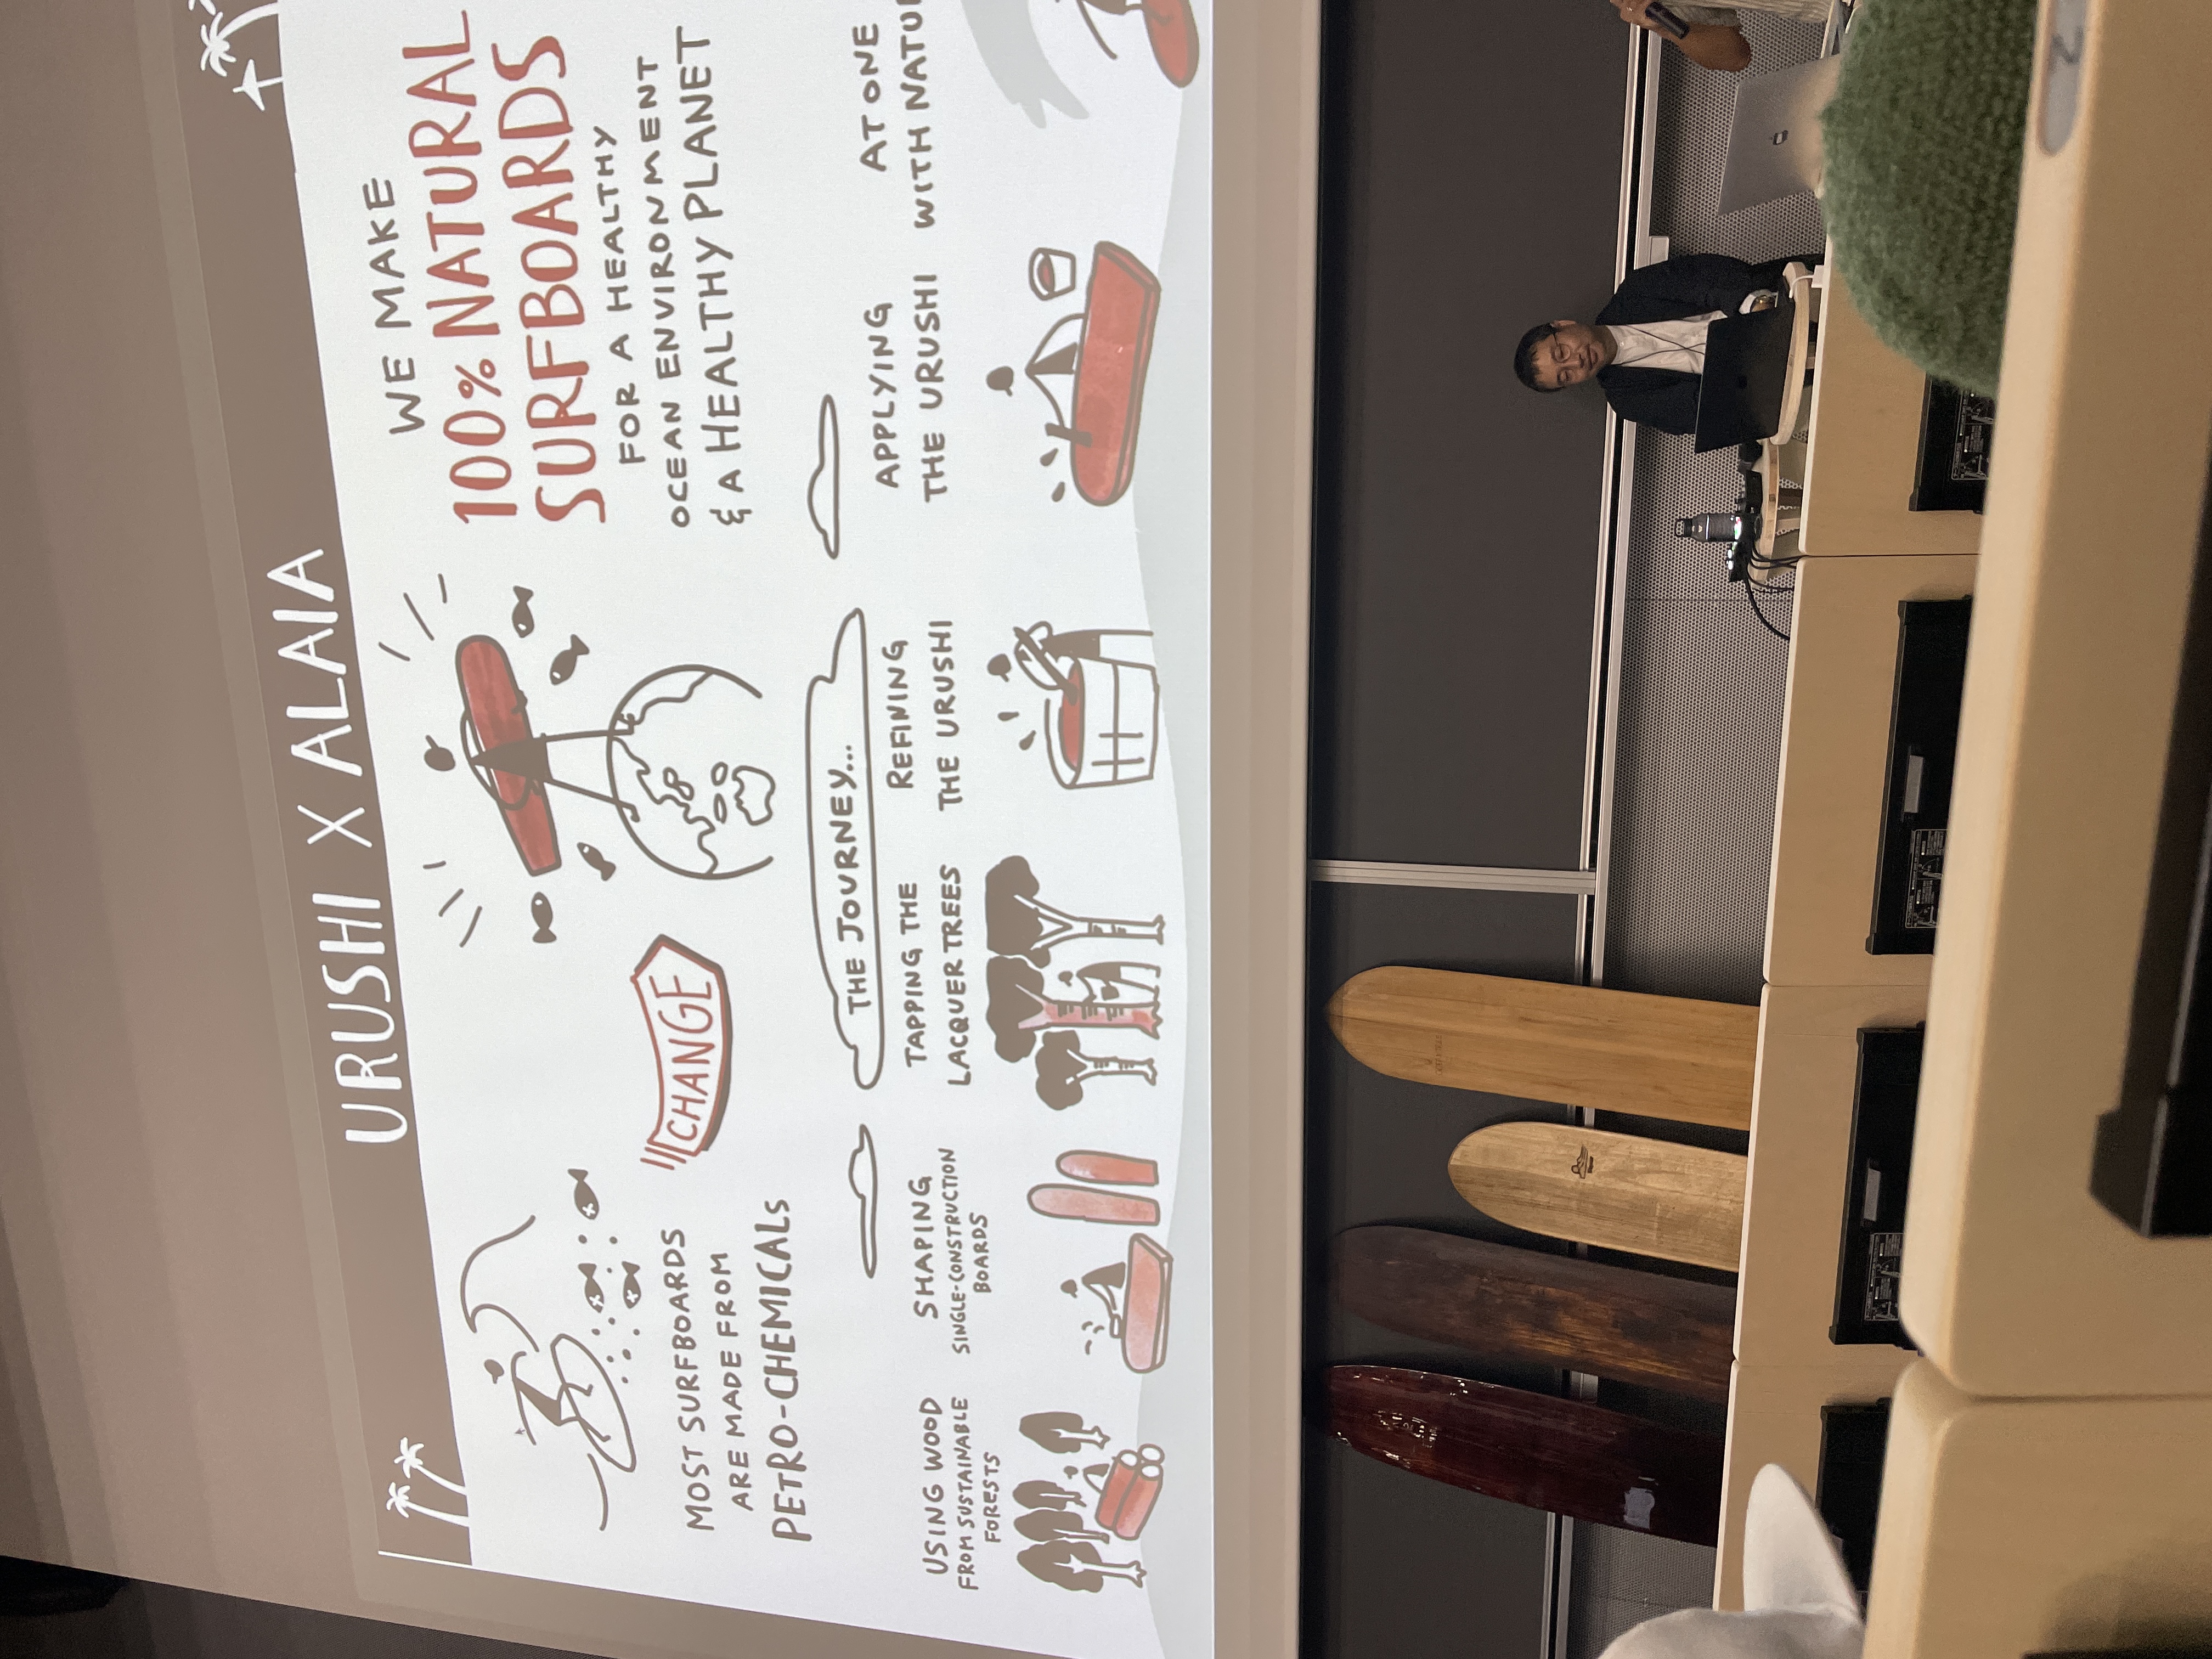 URUSHI X ALAIA
MOST SURFBOARDS
ARE MADE FROM
PETRO-CHEMICALS
CHANGE
WE MAKE
100% NATURAL
SURFBOARDS
FOR A HEALTHY
OCEAN ENVIRONMENT
& A HEALTHY PLANET
THE JOURNEY...
USING WOOD
FROM SUSTAINABLE
FORESTS
SHAPING
SINGLE-CONSTRUCTION
BOARDS
TAPPING THE
LACQUER TREES
REFINING
THE URUSHI
APPLYING
THE URUSHI
AT ONE
WITH NATU
2